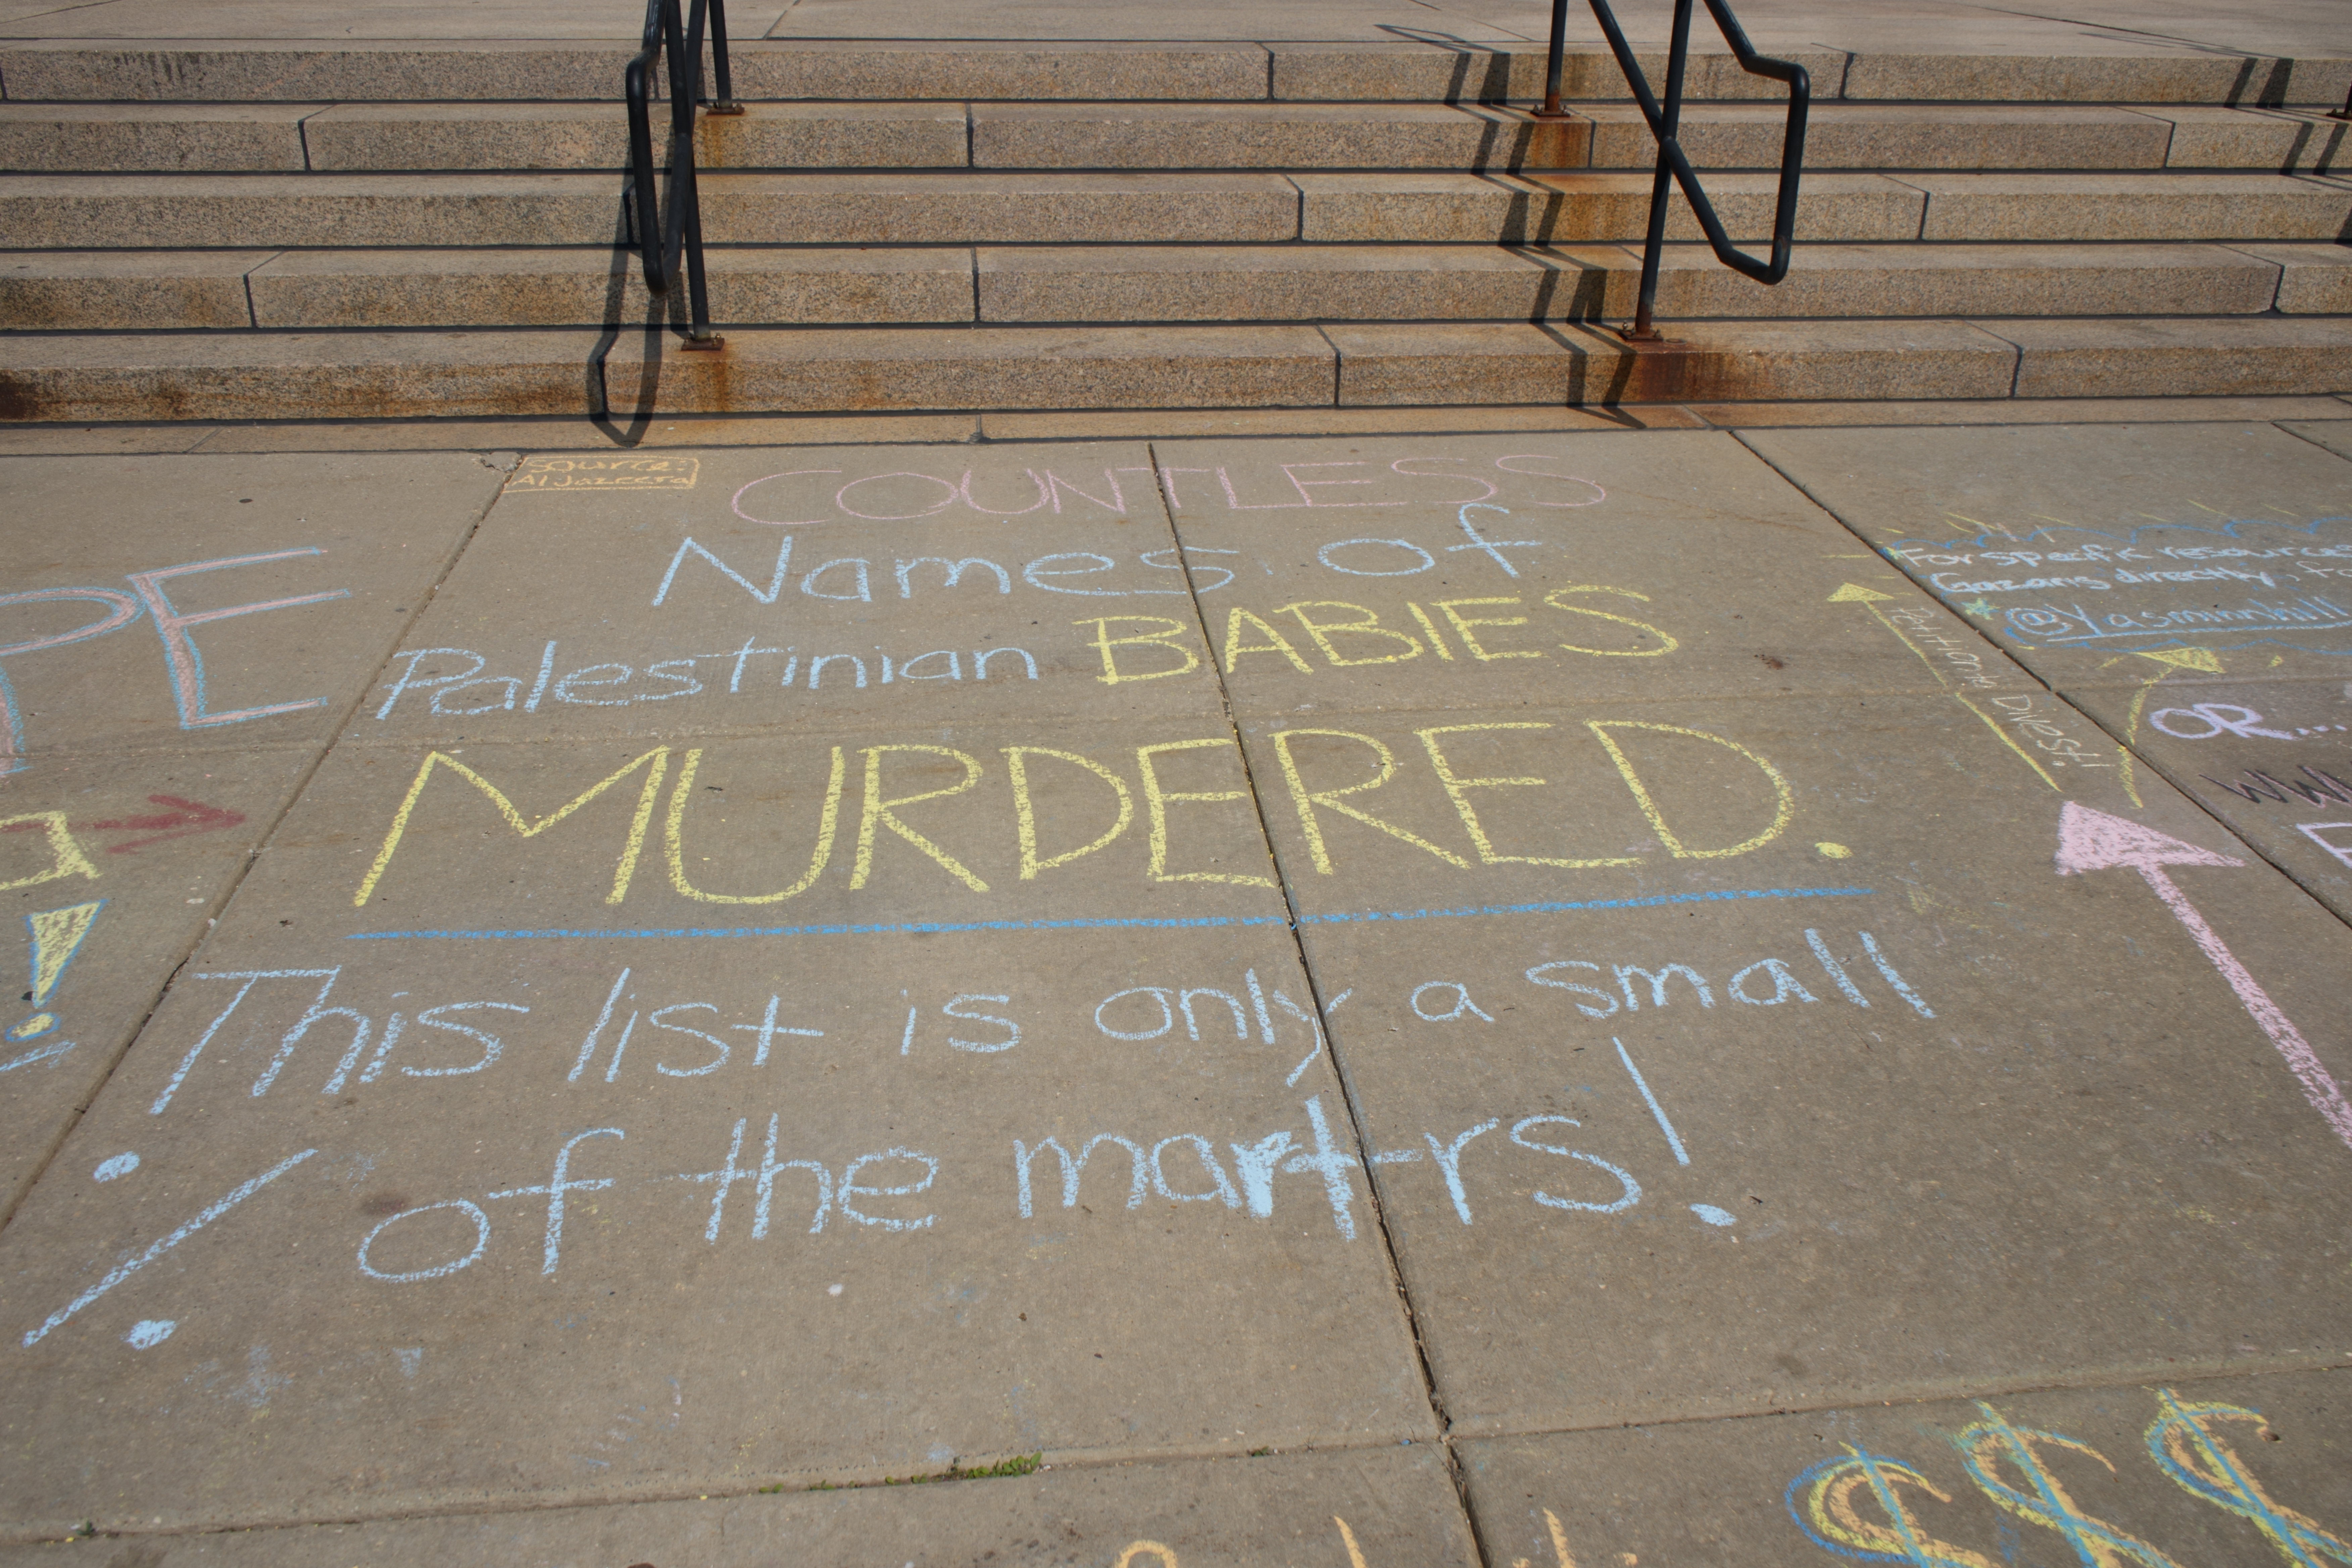 Source:
Al Jazeera
COUNTLESS
Names of
Palestinian BABIES
MURDERED.
This list is only a small
% of the martrs!
PE
!
For specific resource
Gazans directly, fo
@Yasminnhill
Petition to Divest!
OR...
WW
$$$